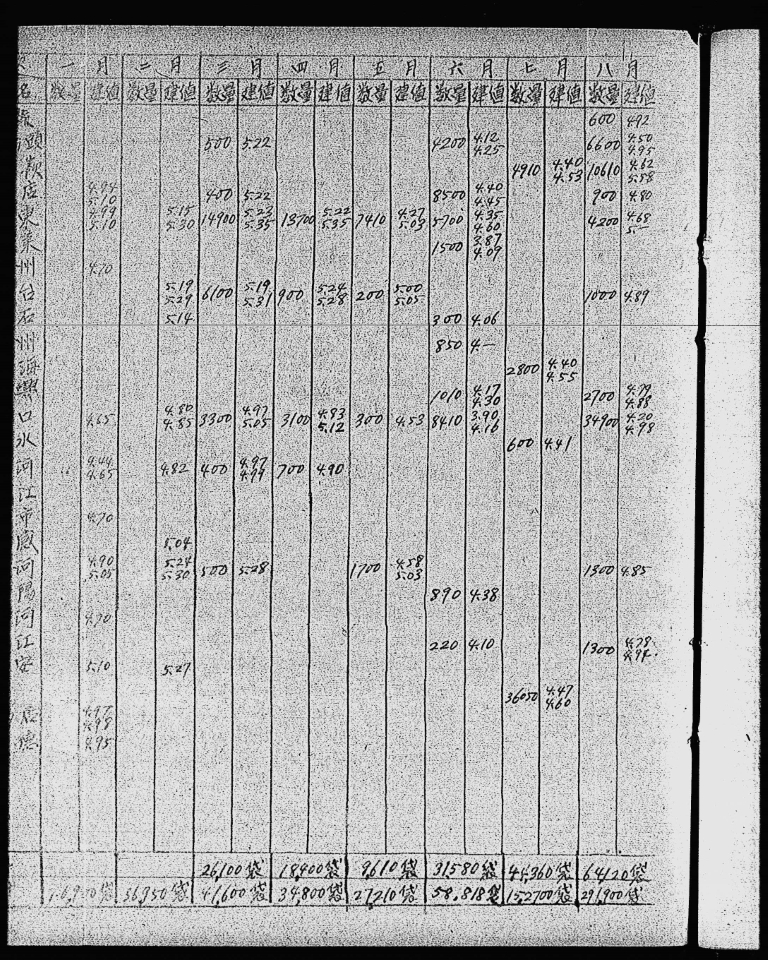 一月 二月 三月 四月 五月 六月 七月 八月
名 数量 建値 数量 建値 数量 建値 数量 建値 数量 建値 数量 建値 数量 建値 数量 建値
600 4.92
頭 500 5.22 4200 4.12 4.25 6600 4.50 4.95
4910 4.40 4.53 10610 4.62 5.58
店 4.94 5.10 400 5.22 8500 4.40 4.45 900 4.80
東 4.99 5.10 5.15 5.30 14900 5.23 5.35 13700 5.22 5.35 7410 4.27 5.03 5700 4.35 4.60 4200 4.68 5.—
1500 3.87 4.09
州 4.70
台 5.19 5.29 6100 5.19 5.31 900 5.24 5.28 200 5.00 5.05 1000 4.89
石 5.14 300 4.06
州 850 4.—
海 2800 4.40 4.55
興 1010 4.17 4.30 2700 4.79 4.88
口 4.65 4.80 4.85 3300 4.97 5.05 3100 4.83 5.12 300 4.53 8410 3.90 4.16 34900 4.20 4.98
氷 600 4.41
河 4.44 4.65 4.82 400 4.97 4.99 700 4.90
江
市 4.70
5.04
河 4.90 5.05 5.24 5.30 500 5.28 1700 4.58 5.03 1300 4.85
陽 890 4.38
河 4.70
江 220 4.10 1300 4.78
安 5.10 5.27
36050 4.47 4.60
店 4.97 4.98
徳 4.95
26,100袋 18,400袋 9,610袋 31580袋 44,360袋 64120袋
36,950袋 41,600袋 34,800袋 27,210袋 58,818袋 15,2700袋 291,900袋